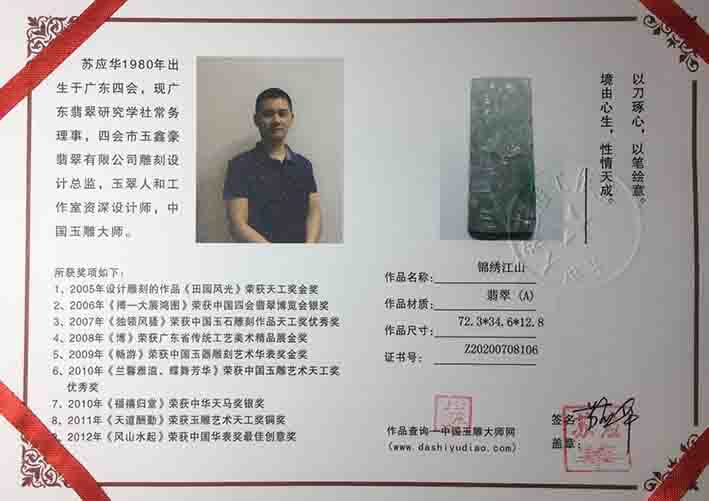 苏应华1980年出
生于广东四会，现广
东翡翠研究学社常务
理事，四会市玉鑫豪
翡翠有限公司雕刻设
计总监，玉翠人和工
作室资深设计师，中
国玉雕大师。
以刀琢心，以笔绘意。
境由心生，性情天成。
所获奖项如下：
1、2005年设计雕刻的作品《田园风光》荣获天工奖金奖
2、2006年《博一大展鸿图》荣获中国四会翡翠博览会银奖
3、2007年《独领风骚》荣获中国玉石雕刻作品天工奖优秀奖
4、2008年《博》荣获广东省传统工艺美术精品展金奖
5、2009年《畅游》荣获中国玉器雕刻艺术华表奖金奖
6、2010年《兰馨雅溢、蝶舞芳华》荣获中国玉雕艺术天工奖
优秀奖
7、2010年《福禧归堂》荣获中华天马奖银奖
8、2011年《天道酬勤》荣获玉雕艺术天工奖铜奖
、2012年《风山水起》荣获中国华表奖最佳创意奖
作品名称： 锦绣江山
作品材质： 翡翠（A）
作品尺寸： 72.3*34.6*12.8
证书号： Z20200708106
签名： 苏应华
作品查询—中国玉雕大师网
盖章：
(www.dashiyudiao.com)